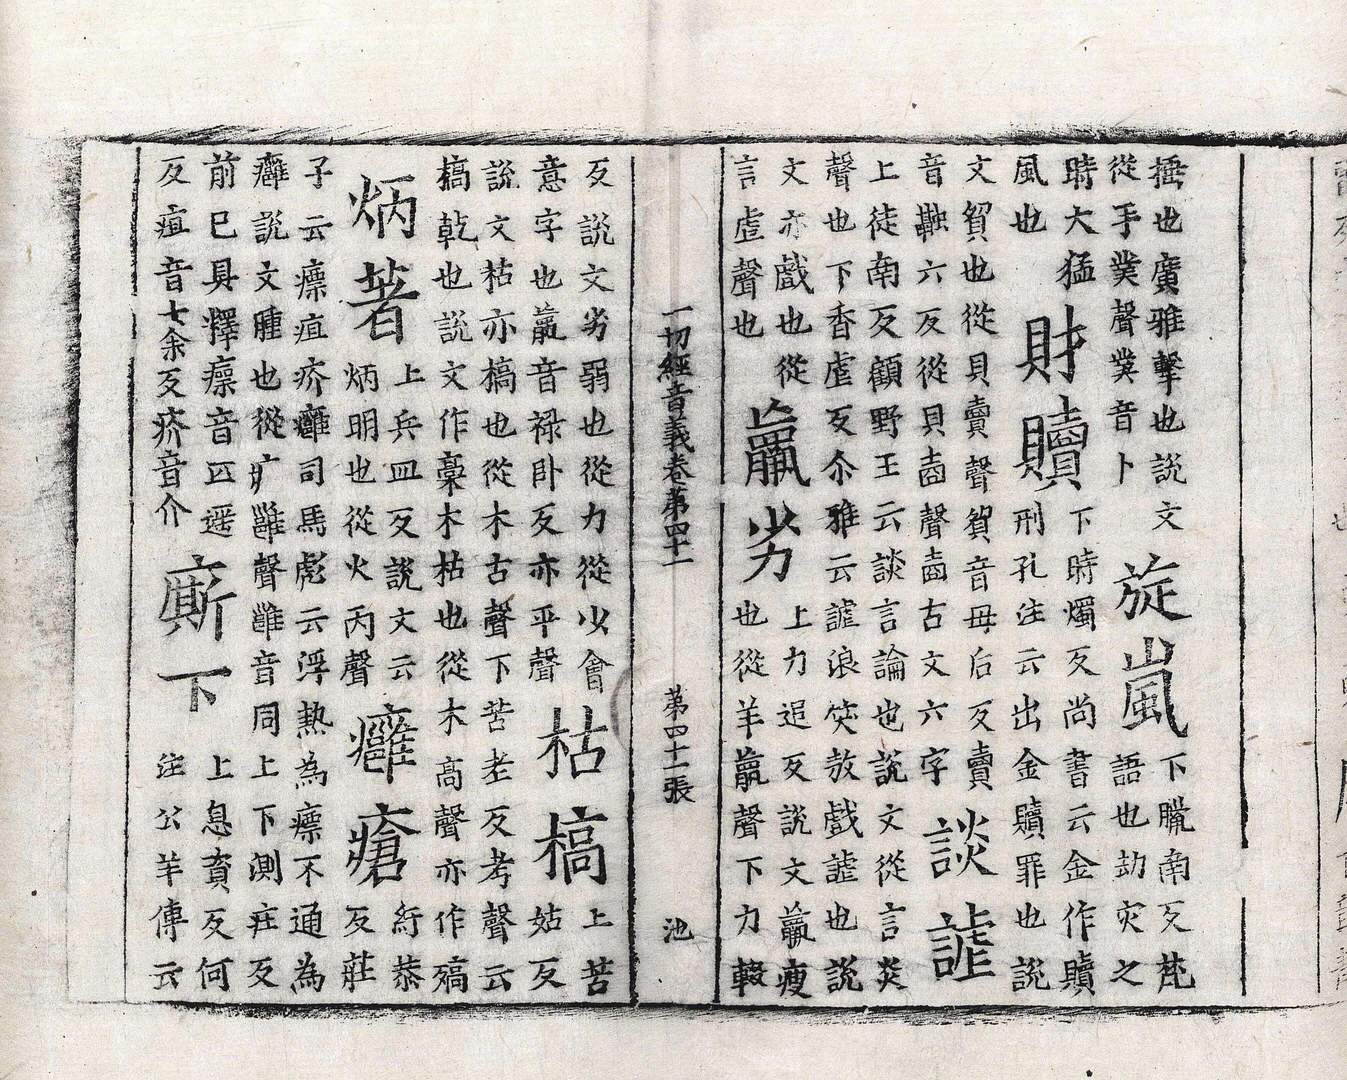 揰也廣雅擊也說文
從手業聲業音卜
旋嵐
下臘南反梵
語也劫灾之
時大猛
風也
財贖
下時燭反尚書云金作贖
刑孔注云出金贖罪也說
文貿也從貝賣聲貿音毋后反賣
音融六反從貝𡍬聲𡍬古文六字
談謔
上徒南反顧野王云談言論也說文從言炎
聲也下香虐反尒雅云謔浪笑敖戲謔也說
文亦戲也從
言虐聲也
羸劣
上力追反說文羸瘦
也從羊𣎆聲下力輟
一切經音義卷第四十一 第四十一張 池
反說文劣弱也從力從少會
意字也𣎆音祿卧反亦平聲
枯槁
上苦
姑反
說文枯亦槁也從木古聲下苦老反考聲云
槁乾也說文作稾木枯也從木高聲亦作
炳著
上兵皿反說文云
炳明也從火丙聲
癰瘡
紆恭
反莊
子云瘭疽疥癰司馬彪云浮熱為瘭不通為
癰說文腫也從疒雝聲雝音同上下測庄反
前已具釋瘭音匹遥
反疽音七余反疥音介
廝下
上息賫反何
注公羊傳云